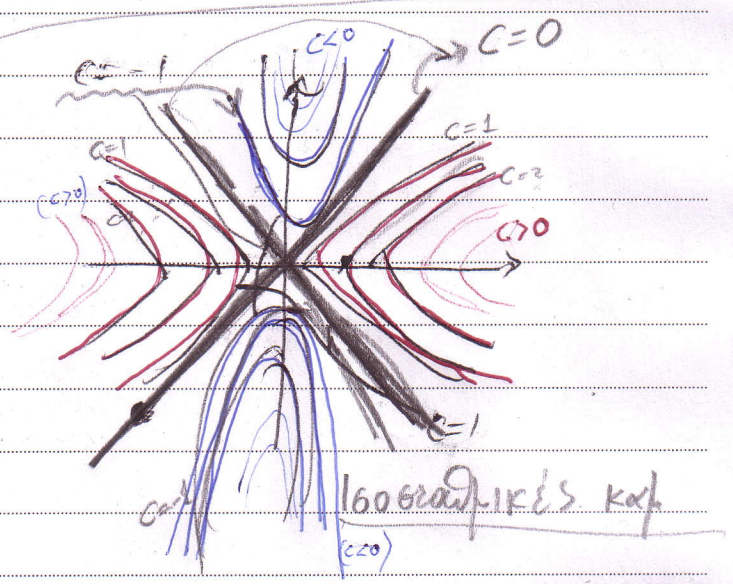 C<0
C=0
C=-1
C=1
C=1
C=2
(C>0)
C>0
C=1
Ισοσταθμικές καμ
(C<0)